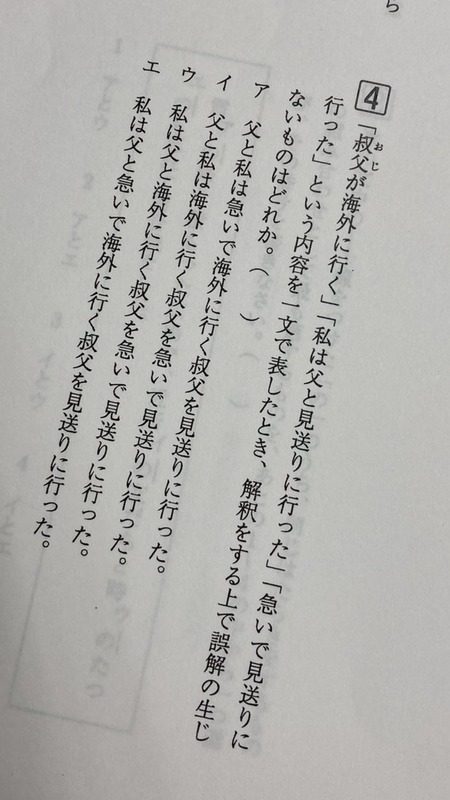 ら
4 「叔父が海外に行く」「私は父と見送りに行った」「急いで見送りに
おじ
行った」という内容を一文で表したとき、解釈をする上で誤解の生じ
ないものはどれか。（　　）
ア　父と私は急いで海外に行く叔父を見送りに行った。
イ　父と私は海外に行く叔父を急いで見送りに行った。
ウ　私は父と海外に行く叔父を急いで見送りに行った。
エ　私は父と急いで海外に行く叔父を見送りに行った。